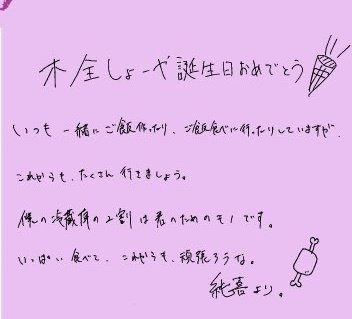 木全しょーや誕生日おめでとう
いつも一緒にご飯作ったり、ご飯食べに行ったりしていますが、
これからも、たくさん行きましょう。
僕の冷蔵庫の2割は君のためのモノです。
いっぱい食べて、これからも、頑張ろうな。
純喜より。